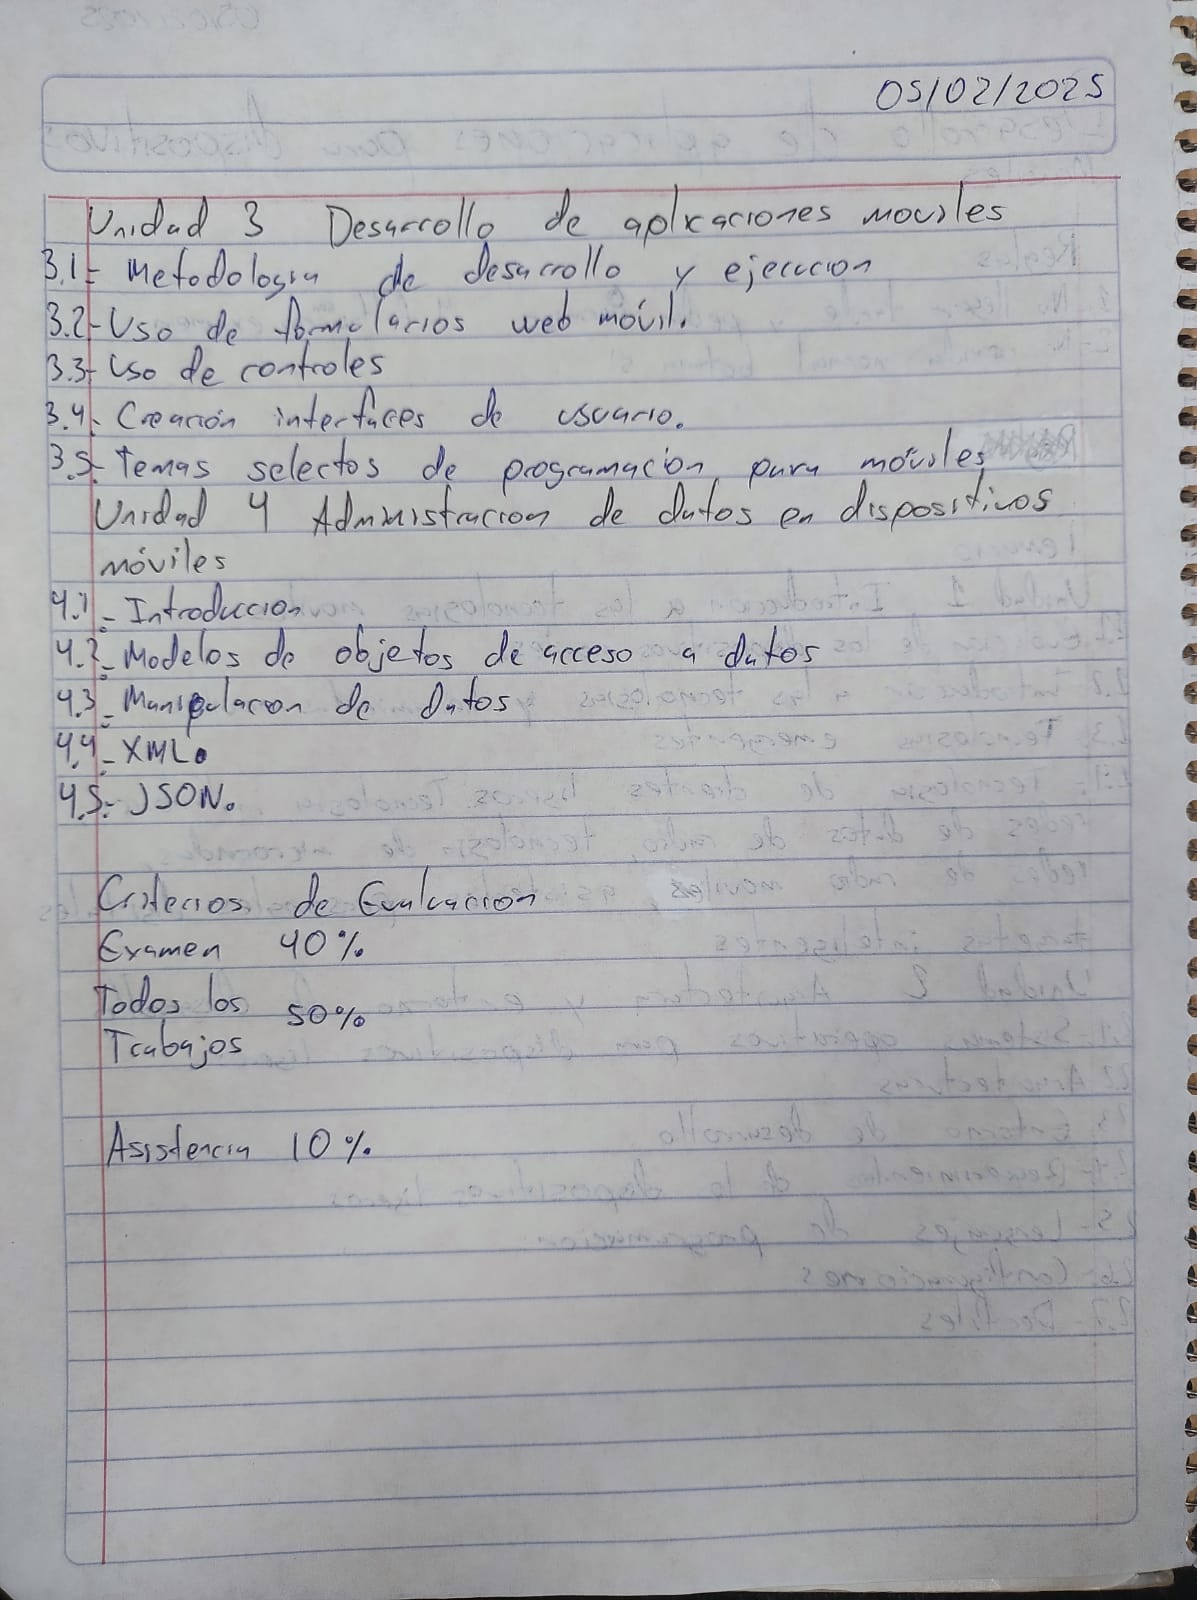 05/02/2025
Unidad 3 Desarrollo de aplicaciones moviles
3.1- Metodologia de desarrollo y ejecucion
3.2- Uso de formularios web móvil.
3.3- Uso de controles
3.4- Creación interfaces de usuario.
3.5- Temas selectos de programacion para móviles
Unidad 4 Administracion de datos en dispositivos
móviles
4.1- Introduccion
4.2- Modelos de objetos de acceso a datos
4.3- Manipulacion de Datos
4.4- XML.
4.5- JSON.
Criterios de Evaluacion
Examen 40%
Todos los 50%
Trabajos
Asistencia 10%